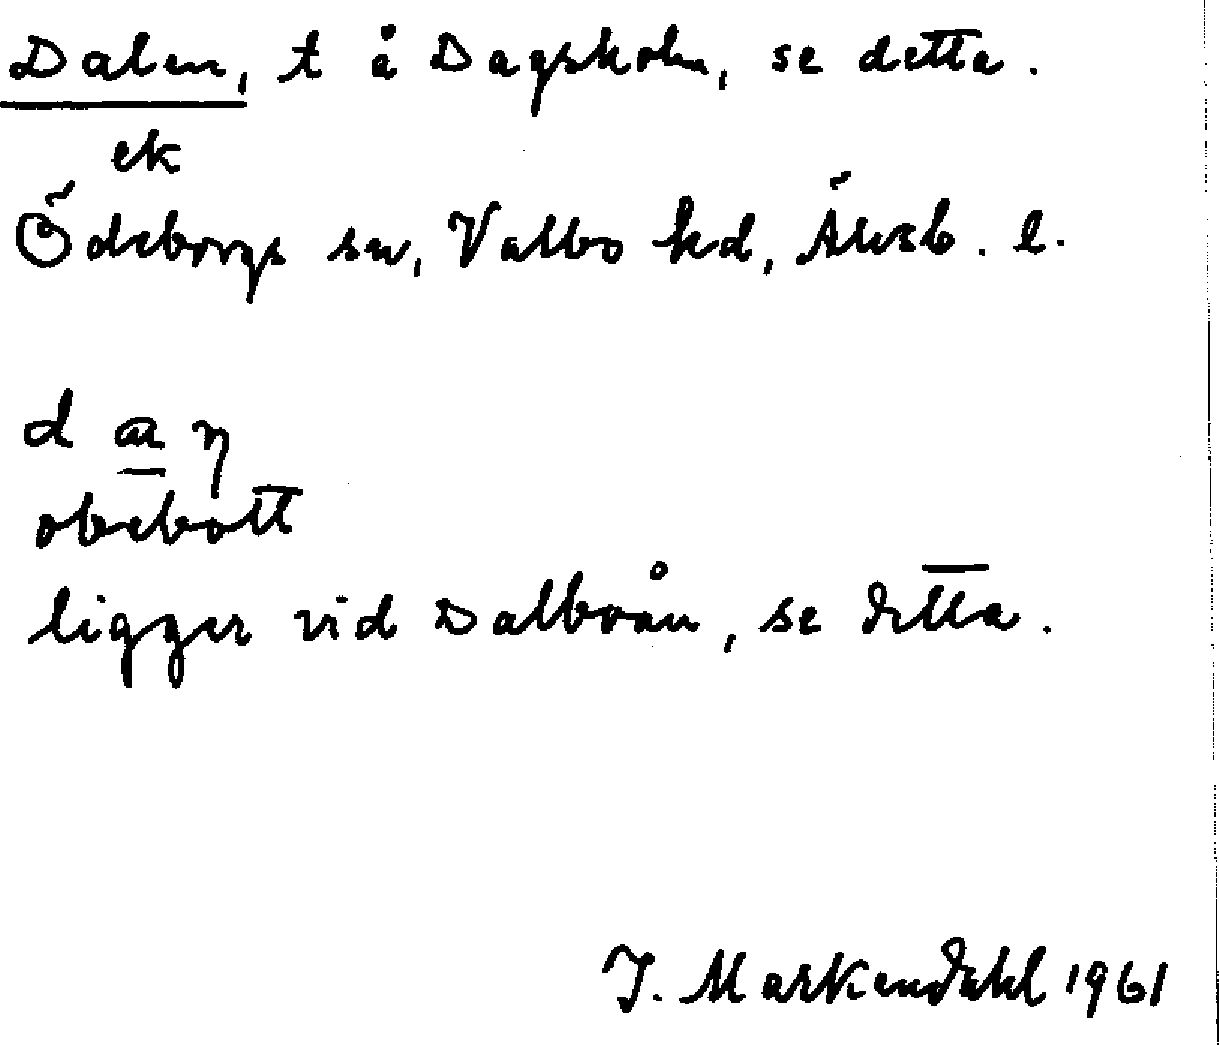 Dalen, t å Dagsholm, se detta.
ek
Ödeborgs sn, Valbo hd, Älvsb. l.
obebott
ligger vid Dalboån, se detta.
J. Markendahl 1961